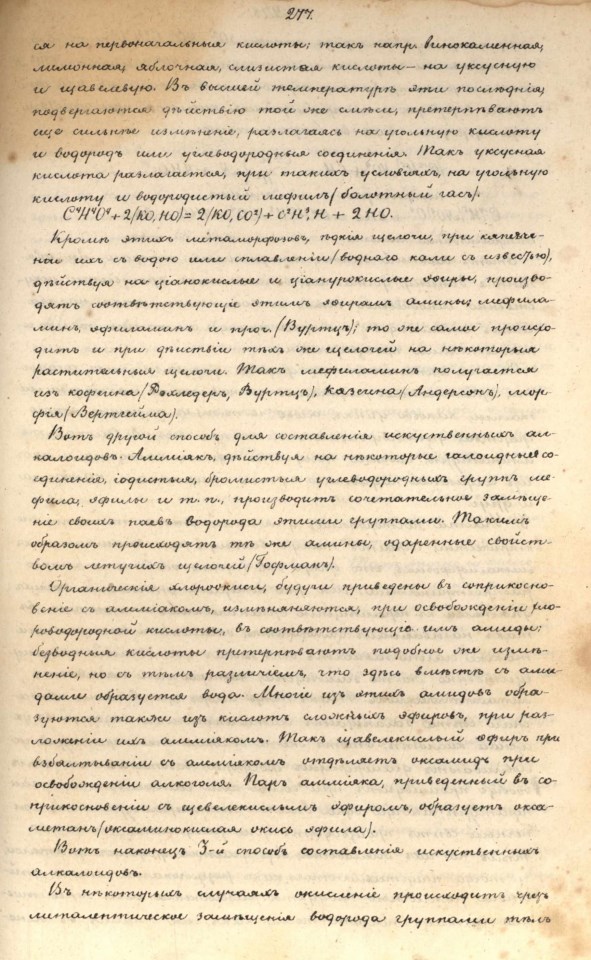 277.
ся на первоначальныя кислоты: такъ напр. Винокаменная,
лимонная, яблочная, слизистая кислоты — на уксусную
и щавелевую. Въ высшей температурѣ эти послѣднія,
подвергаются дѣйствію той же смѣси, претерпѣваютъ
еще сильнѣе измѣненіе, разлагаясь на угольную кислоту
и водородъ или углеводородныя соединенія. Такъ уксусная
кислота разлагается, при такихъ условіяхъ, на угольную
кислоту и водородистый мефилъ (болотный гасъ).
C⁴H⁴O⁴ + 2(KO, HO) = 2(KO, CO²) + C²H³, H + 2HO.
Кромѣ этихъ метаморфозовъ, ѣдкія щелочи, при кипяче-
ніи ихъ съ водою или сплавленіи (воднаго кали съ известью),
дѣйствуя на ціанокислые и ціанурокислые эфиры, произво-
дятъ соотвѣтствующіе этимъ эфирамъ амины; мефила-
минъ, эфиламинъ и проч. (Вуртцъ); то же самое происхо-
дитъ и при дѣйствіи тѣхъ же щелочей на нѣкоторыя
растительныя щелочи. Такъ мефиламинъ получается
изъ кофеина (Рохледеръ, Вуртцъ), казеина (Андерсонъ), мор-
фія (Вертгейма).
Вотъ другой способъ для составленія искуственныхъ ал-
калоидовъ. Амміякъ, дѣйствуя на нѣкоторые галоидные со-
единенія, іодистыя, бромистыя углеводородныхъ группъ ме-
фила, эфилы и т. п., производитъ сочетательное замѣще-
ніе своихъ паевъ водорода этими группами. Такимъ
образомъ происходятъ тѣ же амины, одаренные свойст-
вомъ летучихъ щелочей (Гофманъ).
Органическія хлороокиси, будучи приведены въ соприкосно-
веніе съ амміакомъ, измѣняются, при освобожденіи хло-
роводородной кислоты, въ соотвѣтствующіе имъ амиды:
безводныя кислоты претерпѣваютъ подобное же измѣ-
неніе, но съ тѣмъ различіемъ, что здѣсь вмѣстѣ съ ами-
дами образуется вода. Многіе изъ этихъ амидовъ обра-
зуются также изъ кислотъ сложныхъ эфировъ, при раз-
ложеніи ихъ амміякомъ. Такъ щавелекислый эфиръ при
взбалтываніи съ амміакомъ отдѣляетъ оксамидъ при
освобожденіи алкоголя. Паръ амміяка, приведенный въ со-
прикосновеніи съ щевелекислымъ эфиромъ, образуетъ окса-
метанъ (оксаминокислая окись эфила).
Вотъ наконецъ 3-й способъ составленія искуственныхъ
алкалоидовъ.
Въ нѣкоторыхъ случаяхъ окисленіе происходитъ чрезъ
металептическое замѣщенія водорода группами тѣлъ